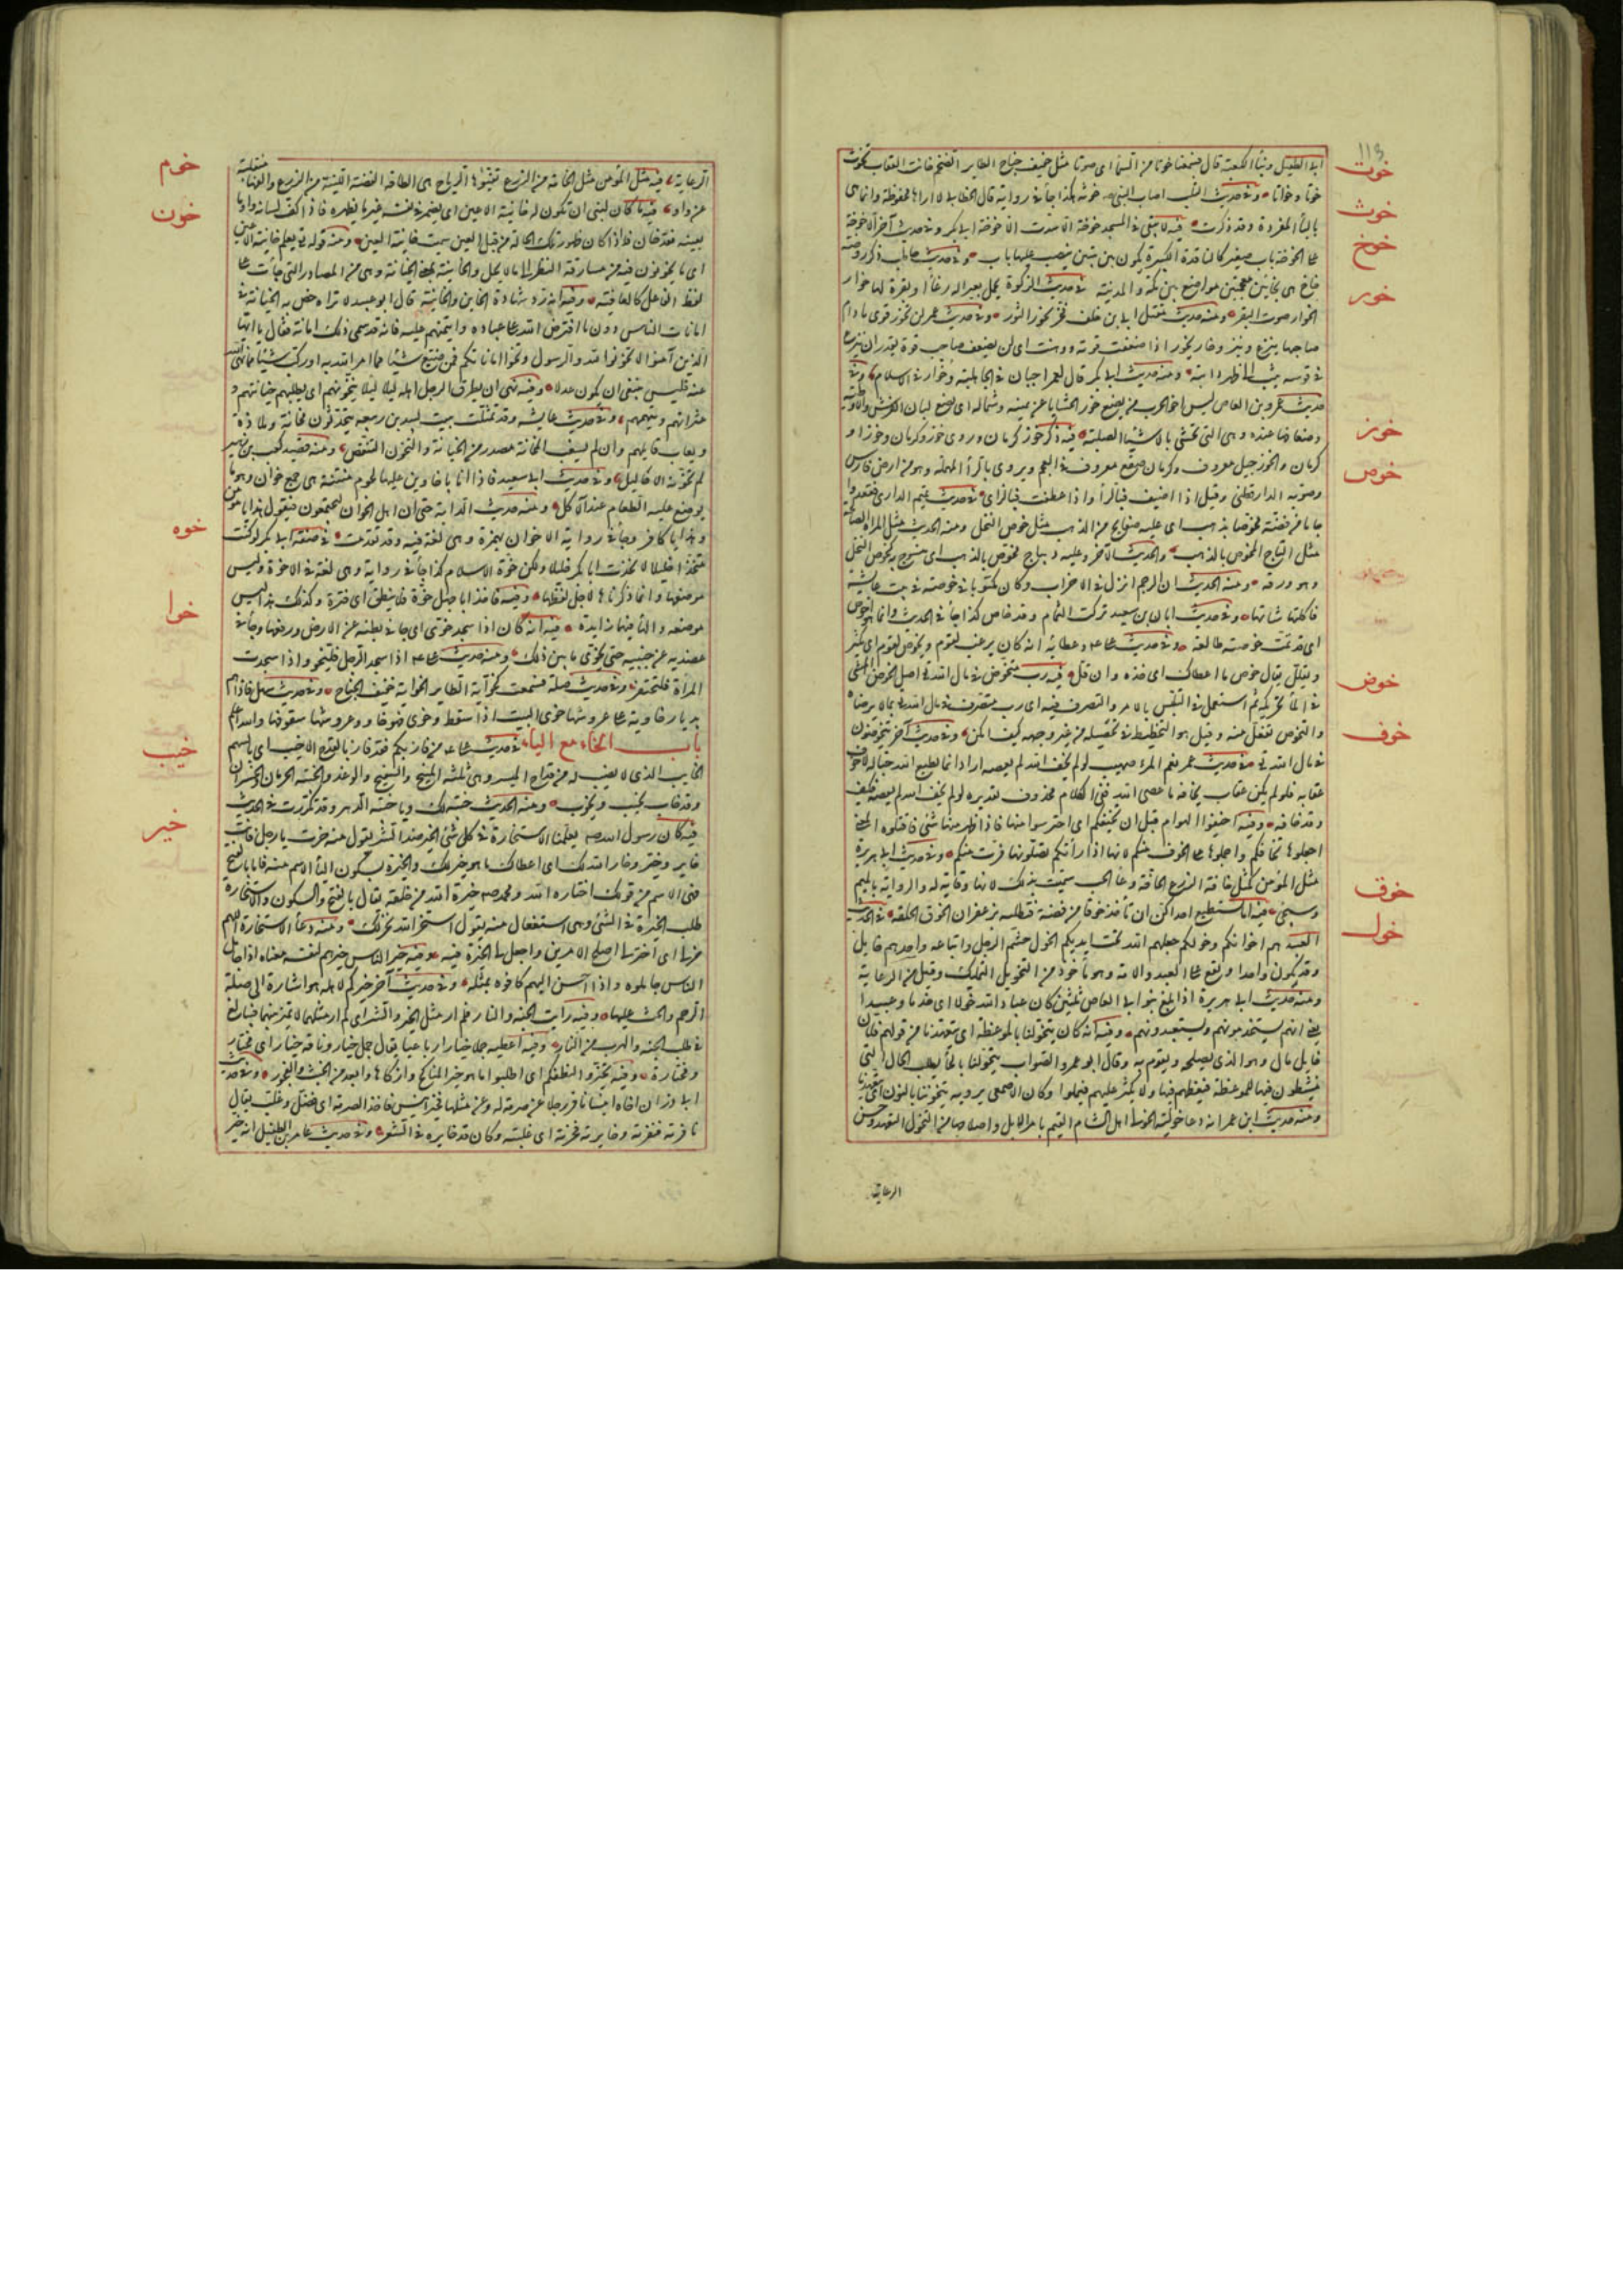 ١١٣
خوت
ابى الطفيل وبناء الكعبة قال فسمعنا خواتا من السماء اى صوتا مثل حفيف جناح الطاير الضخم خاتت العقاب تخوت
خوث
خوتا وخواتا وفى حديث التلب اصاب النبى صلعم خوثة هكذا جاء فى رواية قال الخطابى لا اراها محفوظة وانما هى
خوخ
بالباء المفردة وقد ذكرت فيه لا يبقى فى المسجد خوخة الا سدت الا خوخة ابى بكر وفى حديث آخر الا خوخة
على الخوخة باب صغير كالنافذة الكبيرة تكون بين بيتين ينصب عليها باب وفى حديث حاطب ذكر روضة
خور
خاخ هى بخاءين معجمتين موضع بين مكة والمدينة فى حديث الزكوة يحمل بعيرا له رغاء او بقرة لها خوار
الخوار صوت البقر ومنه حديث مقتل ابى بن خلف فخر يخور كما يخور الثور وفى حديث عمر لن تخور قوى ما دام
صاحبها ينزع وينزو خار يخور اذا ضعفت قوته ووهت اى لن يضعف صاحب قوة يقدر ان ينزع
فى قوسه ويثب الى ظهر دابته ومنه حديث ابى بكر قال لعمر اجبان فى الجاهلية وخوار فى الاسلام وفى
حديث عمرو بن العاص ليس اخو الحرب من يضع خور الحشايا عن يمينه وشماله اى يضع لبان الفرش والاوطية
خوز
وضعافها عنده وهى التى تحشى بالاشياء الصلبة فيه ذكر خوز كرمان وروى خوز وكرمان وخوزا و
كرمان والخوز جيل معروف وكرمان صقع معروف فى العجم ويروى بالراء المهملة وهو من ارض فارس
خوص
وصوبه الدارقطنى وقيل اذا اضيف فبالراء واذا عطفت فبالزاى فى حديث تميم الدارى ففقدوا
جاما من فضة مخوصا بذهب اى عليه صفايح من الذهب مثل خوص النخل ومنه الحديث مثل المرأة الصالحة
مثل التاج المخوص بالذهب والحديث الآخر وعليه ديباج مخوص بالذهب اى منسوج به كخوص النخل
وهو ورقه ومنه الحديث ان الرجم انزل فى الاحزاب وكان مكتوبا فى خوصة فى بيت عايشة
فاكلتها شاتها وفى حديث ابان بن سعيد تركت الثمام وقد خاص كذا جاء فى الحديث وانما هو اخوص
اى قد تمت خوصته طالعة وفى حديث على وعطايه انه كان يرعب لقوم ويخوص لقوم اى يكثر
خوض
ويقلل يقال خوص ما اعطاك اى خذه وان قل فيه رب متخوض فى مال الله تع اصل الخوض المشى
فى الماء وتحريكه ثم استعمل فى التلبس بالامر والتصرف فيه اى رب متصرف فى مال الله بما لا يرضاه
خوف
والتخوض تفعل منه وقيل هو التخليط فى تحصيله من غير وجهه كيف امكن وفى حديث آخر يتخوضون
فى مال الله تع فى حديث عمر نعم المرء صهيب لو لم يخف الله لم يعصه اراد انما يطيع الله حبا له لا خوف
عقابه فلو لم يكن عقاب يخافه ما عصى الله ففى الكلام محذوف تقديره لو لم يخف الله لم يعصه فكيف
وقد خافه وفيه اخيفوا الهوام قبل ان تخيفكم اى احترسوا منها فاذا ظهر منها شئ فاقتلوه المعنى
اجعلوها تخافكم واحملوها على الخوف منكم لانها اذا رأتكم تقتلونها فرت منكم وفى حديث ابى هريرة
خوق
مثل المؤمن كمثل خافة الزرع الخافة وعاء الحب سميت بذلك لانها وقاية له والرواية بالميم
وسيجئ فيه اما تستطيع احداكن ان تاخذ خوقا من فضة فتطليه بزعفران الخوق الحلقة فى الحديث
خول
العبيد هم اخوانكم وخولكم جعلهم الله تحت ايديكم الخول حشم الرجل واتباعه واحدهم خايل
وقد يكون واحدا ويقع على العبد والامة وهو ماخوذ من التخويل التمليك وقيل من الرعاية
ومنه حديث ابى هريرة اذا بلغ بنو ابى العاص ثلثين كان عباد الله خولا اى خدما وعبيدا
يعنى انهم يستخدمونهم ويستعبدونهم وفيه انه كان يتخولنا بالموعظة اى يتعهدنا من قولهم فلان
خايل مال وهو الذى يصلحه ويقوم به وقال ابو عمرو الصواب يتحولنا بالحاء يطلب الحال التى
ينشطون فيها للموعظة فيعظهم فيها ولا يكثر عليهم فيملوا وكان الاصمعى يرويه يتخوننا بالنون اى يتعهدنا
ومنه حديث ابن عمر انه دعا خوليه الخولى اهل الشام القيم بامر الابل واصلاحها من التخول التعهد وحسن
الرعاية
خوم
الرعاية فيه مثل المؤمن مثل الخامة من الزرع تفيئها الرياح هى الطاقة الغضة اللينة من الزرع والفها منقلبة
خون
عن واو فيه ما كان لنبى ان تكون له خاينة الاعين اى يضمر فى نفسه غير ما يظهره فاذا كف لسانه واومأ
بعينه فقد خان واذا كان ظهور تلك الحالة من قبل العين سميت خاينة العين ومنه قوله تع يعلم خاينة الاعين
اى ما يخونون فيه من مسارقة النظر الى ما لا يحل والخاينة بمعنى الخيانة وهى من المصادر التى جاءت على
لفظ الفاعل كالعافية وفيه انه رد شهادة الخاين والخاينة قال ابو عبيد لا نراه خص به الخيانة فى
امانات الناس دون ما افترض الله على عباده وائتمنهم عليه فانه قد سمى ذلك امانة فقال يا ايها
الذين آمنوا لا تخونوا الله والرسول وتخونوا اماناتكم فمن ضيع شيئا مما امر الله به او ركب شيئا مما نهى الله
عنه فليس ينبغى ان يكون عدلا وفيه نهى ان يطرق الرجل اهله ليلا لئلا يتخونهم اى يطلب خيانتهم و
عثراتهم ويتهمهم وفى حديث عايشة وقد تمثلت ببيت لبيد بن ربيعة يتحدثون مخانة وملاذة
ويعاب قايلهم وان لم يشغب المخانة مصدر من الخيانة والتخون التنقص ومنه قصيد كعب بن زهير
لم تخونه الاحاليل وفى حديث ابى سعيد فاذا انا باخاوين عليها لحوم منتنة هى جمع خوان وهو ما
يوضع عليه الطعام عند الاكل ومنه حديث الدابة حتى ان اهل الخوان ليجتمعون فيقول هذا يا مؤمن
خوه
وهذا يا كافر وجاء فى رواية الاخوان بهمزة وهى لغة فيه وقد تقدمت فى صفة ابى بكر لو كنت
متخذا خليلا لاتخذت ابا بكر خليلا ولكن خوة الاسلام كذا جاء فى رواية وهى لغة فى الاخوة وليس
موضعها وانما ذكرناها لاجل لفظها وفيه فاخذ ابا جهل خوة فلا ينطق اى فترة وكذلك هذا ليس
خوا
موضعه والهاء فيها زايدة فيه انه كان اذا سجد خوى اى جافى بطنه عن الارض ورفعها وجافى
عضديه عن جنبيه حتى يخوى ما بين ذلك ومنه حديث على اذا سجد الرجل فليخو واذا سجدت
المرأة فلتحتفز وفى حديث صلة فسمعت كخواية الطاير الخواية حفيف الجناح وفى حديث سهل فاذا هم
بديار خاوية على عروشها خوى البيت اذا سقط وخوى فهو خاو وعروشها سقوفها والله اعلم
خيب
باب الخاء مع الياء فى حديث على من فاز بكم فقد فاز بالقدح الاخيب اى بالسهم
الخايب الذى لا نصيب له من قداح الميسر وهى ثلثة المنيح والسفيح والوغد والخيبة الحرمان والخسران
وقد خاب يخيب ويخوب ومنه الحديث خيبة لك ويا خيبة الدهر وقد تكررت فى الحديث
خير
فيه كان رسول الله صلعم يعلمنا الاستخارة فى كل شئ الخير ضد الشر يقول منه خرت يا رجل فانت
خاير وخير وخار الله لك اى اعطاك ما هو خير لك والخيرة بسكون الياء الاسم منه فاما بالفتح
فهى الاسم من قولك اختاره الله ومحمد صلعم خيرة الله من خلقه يقال بالفتح والسكون والاستخارة
طلب الخيرة فى الشئ وهى استفعال منه يقول استخر الله يخر لك ومنه دعاء الاستخارة اللهم
خر لى اى اختر لى اصلح الامرين واجعل لى الخيرة فيه وفيه خير الناس خيرهم لنفسه معناه اذا جامل
الناس جاملوه واذا احسن اليهم كافوه بمثله وفى حديث آخر خيركم خيركم لاهله هو اشارة الى صلة
الرحم والحث عليها وفيه رايت الجنة والنار فلم ار مثل الخير والشر اى لم ار مثلهما لا يميز بينهما فيبالغ
فى طلب الجنة والهرب من النار وفيه اعطيه جملا خيارا رباعيا يقال جمل خيار وناقة خيار اى مختار
ومختارة وفيه تخيروا لنطفكم اى اطلبوا ما هو خير المناكح وازكاها وابعد من الخبث والفجور وفى حديث
ابى ذر ان اخاه انيسا نافر رجلا عن صرمة له وعن مثلها فخير انيس فاخذ الصرمة اى فضل وغلب يقال
نافرته فنفرته وخايرته فخرته اى غلبته وكان قد خايره فى الشعر وفى حديث عامر بن الطفيل انه خير